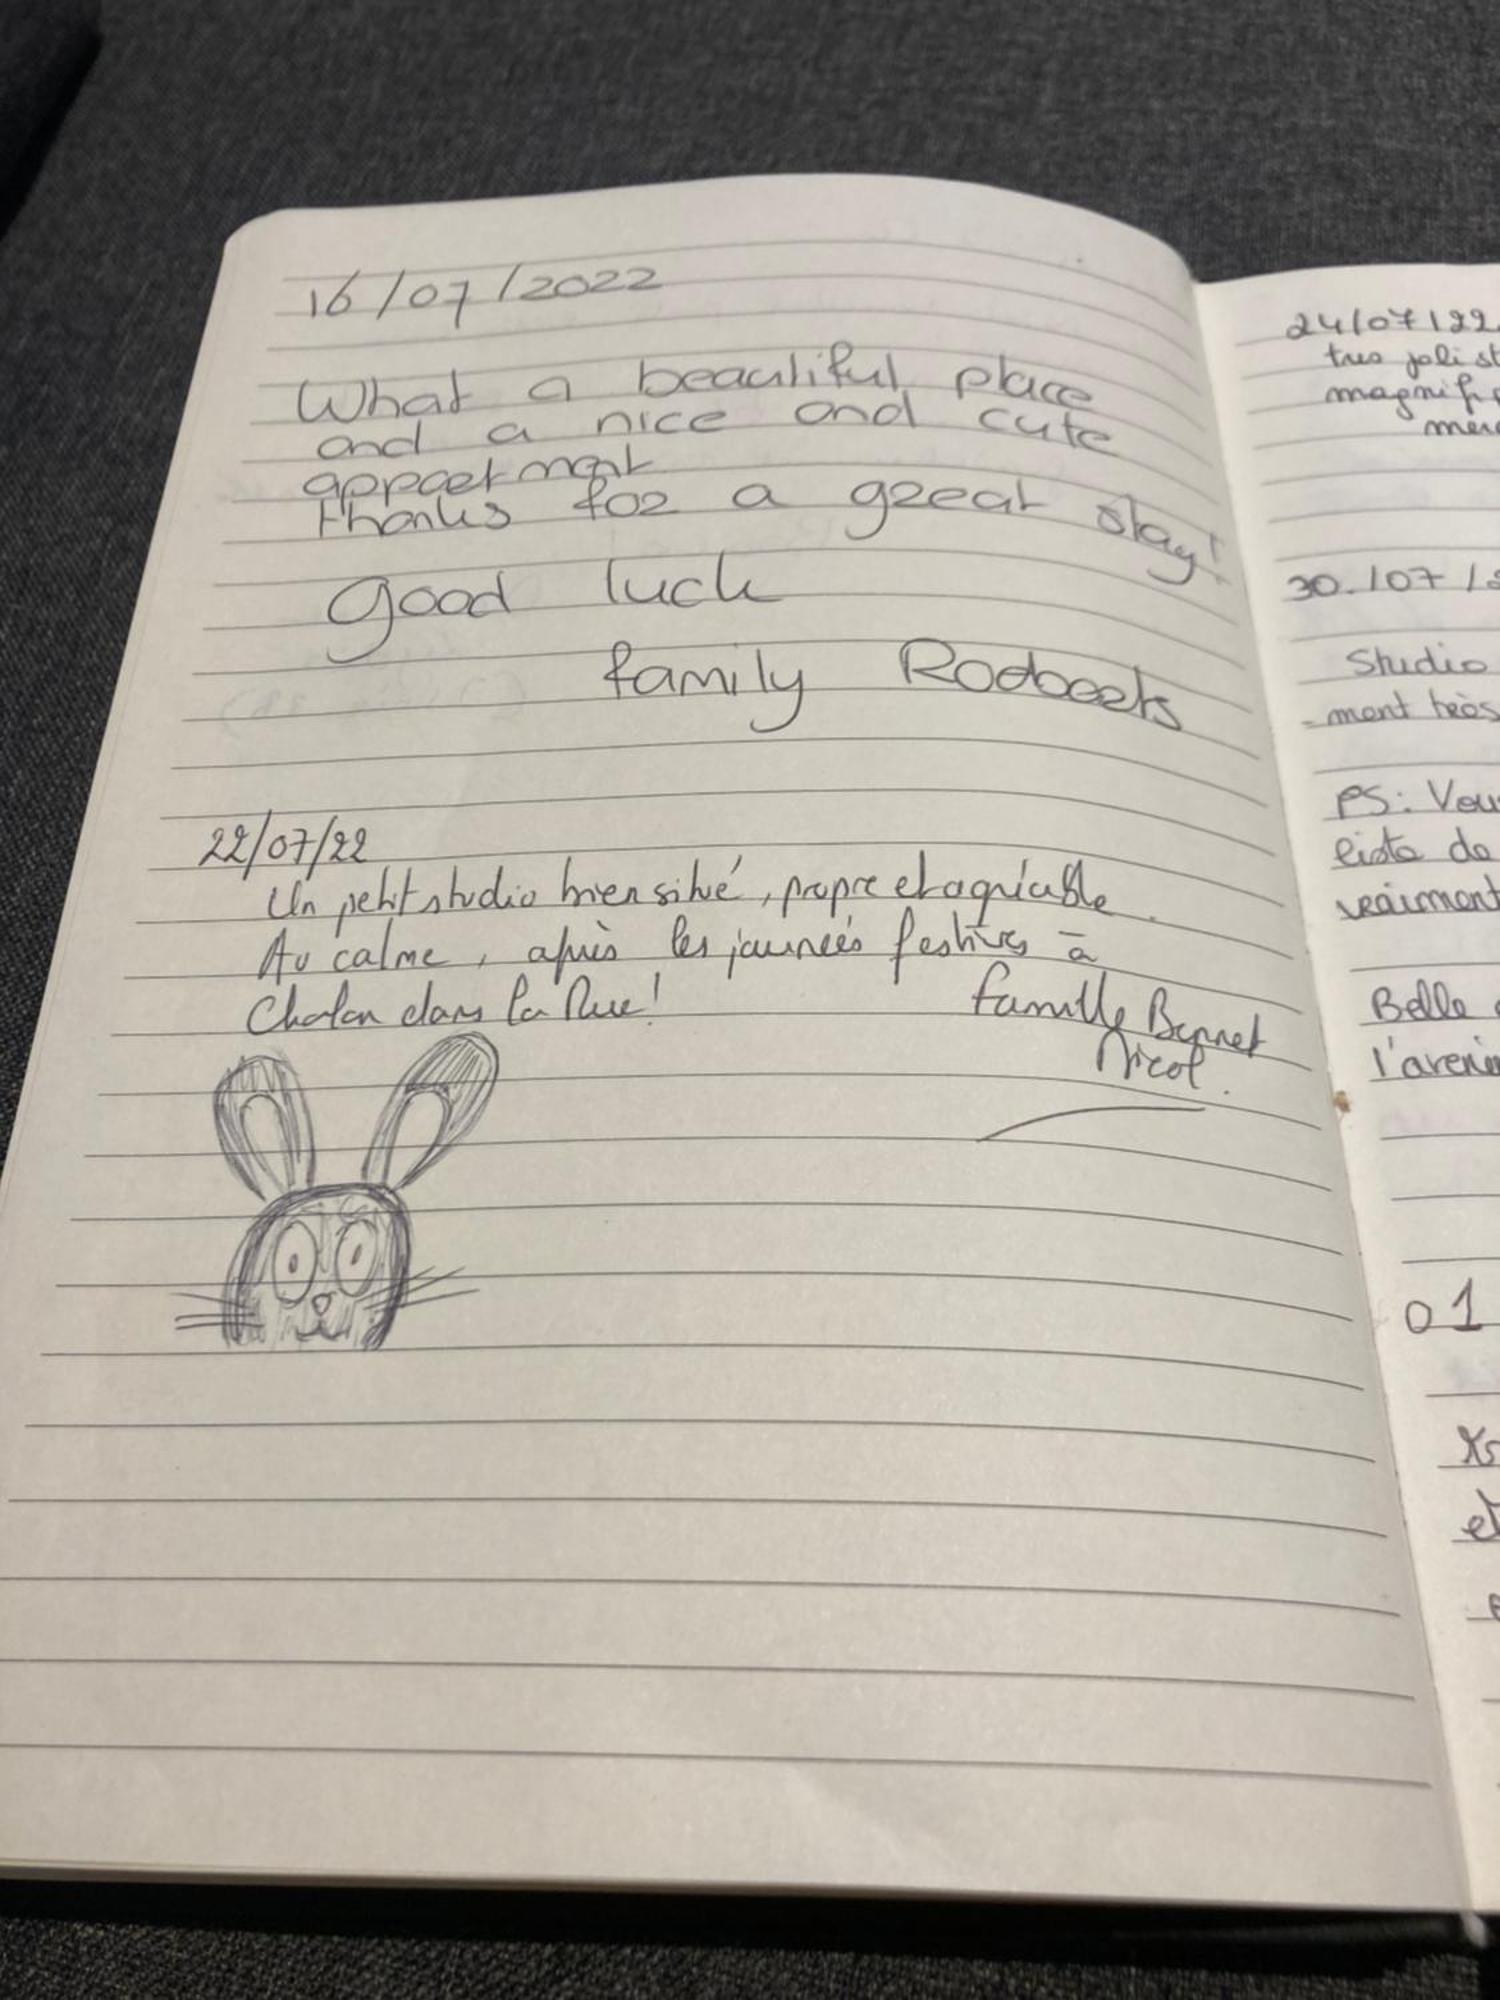 16/07/2022
What a beautiful place
and a nice and cute
appartment
thanks for a great stay!
Good luck
family Rodoerts
22/07/22
Un petit studio bien situé, propre et agréable.
Au calme, après les journées festives à
Chalon dans la Rue!
famille Bonnet
Nicol.
24/07/22
tres joli st
magnif
merc
30.107 /2
Studio
-ment très
PS: Vous
liste de
vraiment
Belle
l'aveni
01
et